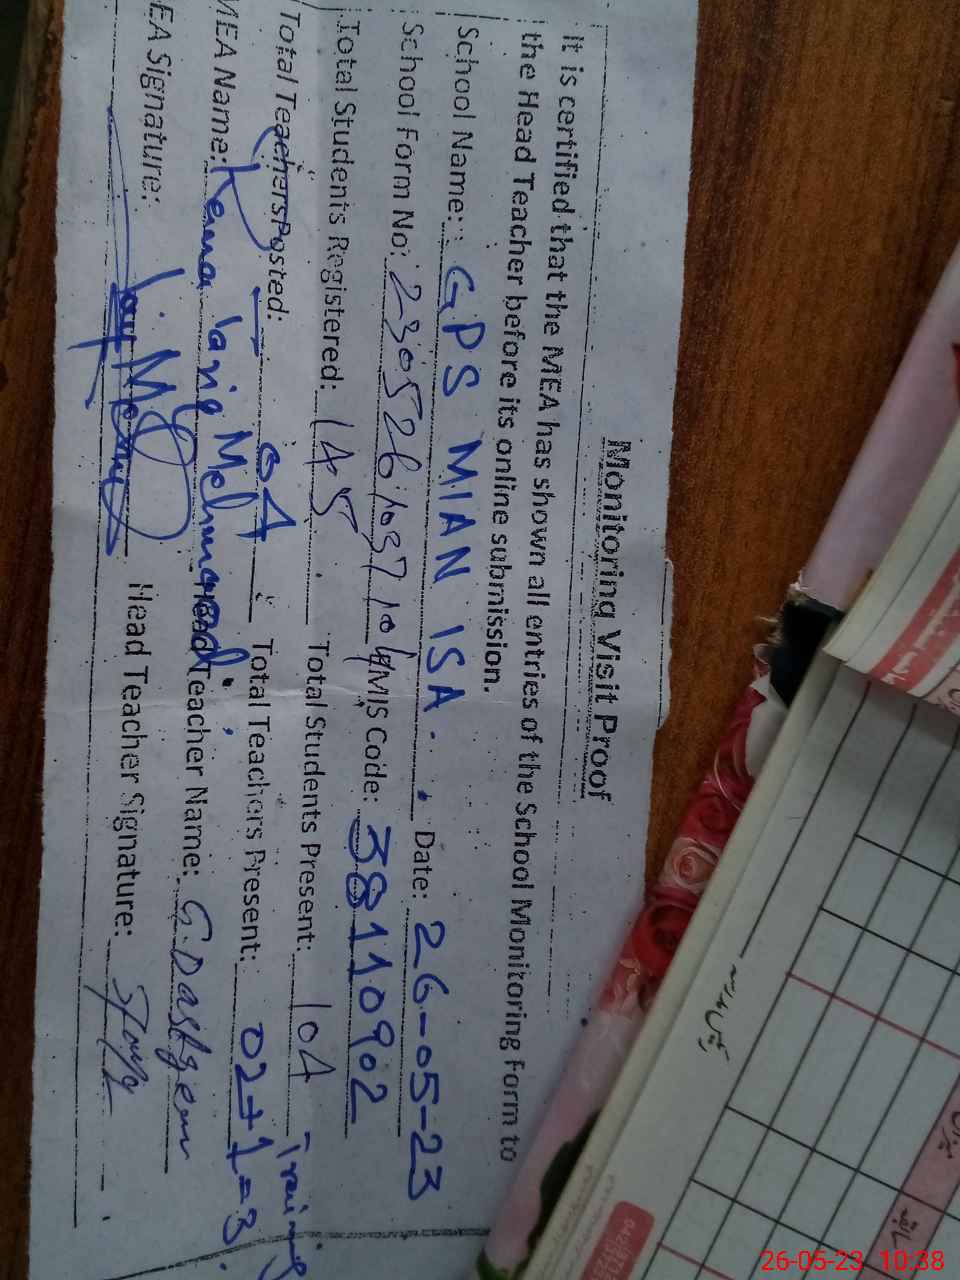 Monitoring Visit Proof
It is certified that the MEA has shown all entries of the School Monitoring Form to
the Head Teacher before its online submission.
School Name: GPS MIAN ISA. Date: 26-05-23
School Form No: 230526103710 EMIS Code: 38110902
Total Students Registered: 145 Total Students Present: 104
Total Teachers Posted: 04 Total Teachers Present: 02+1=3
Training
MEA Name: Mehmood Head Teacher Name: G.Dastgeer
EA Signature: Head Teacher Signature:
26-05-23 10:38